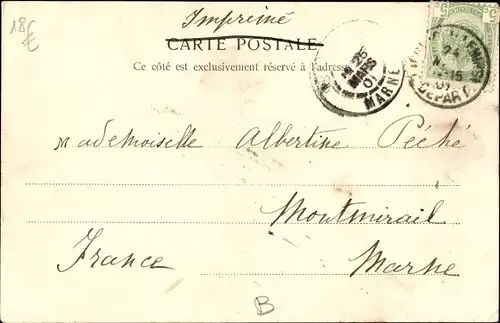 18€
Imprimé
CARTE POSTALE
Ce côté est exclusivement réservé à l'adresse
25 MARS 01
MARNE
5
5
24
15
01
DEPART
Mademoiselle Albertine Péché
Montmirail
France Marne
B